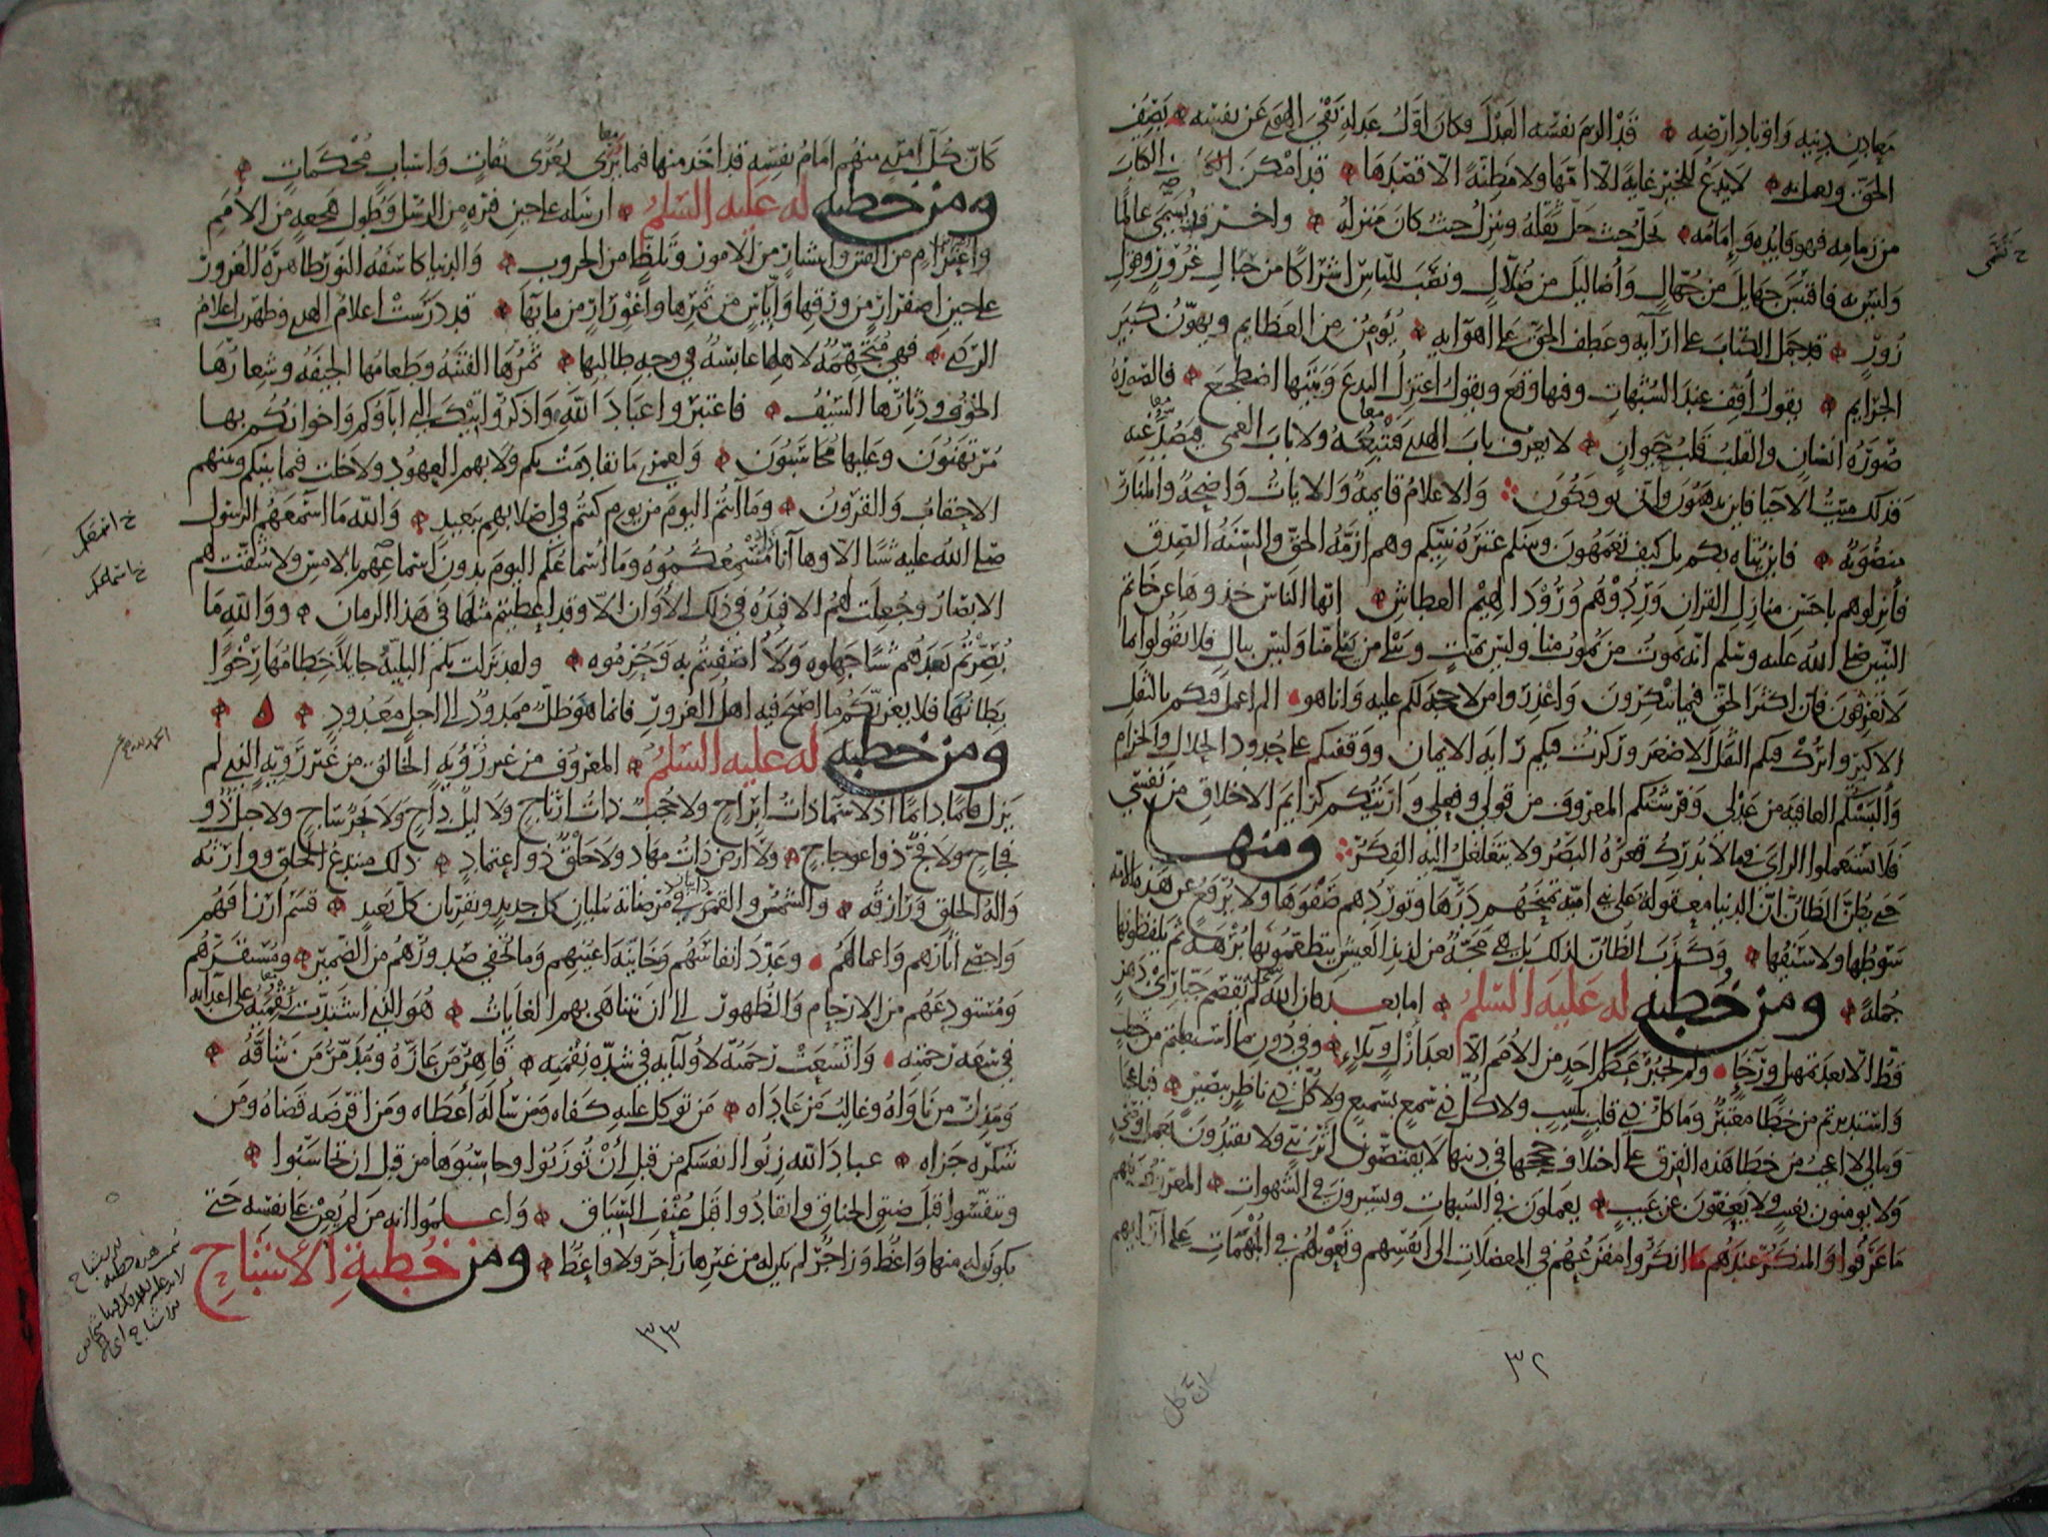 معادن دينه واوتاد ارضه قد الزم نفسه العدل وكان اول عدله نفي الهوى عن نفسه يصف
الحق ويعمل به لا يدع للخير غاية الا امها ولا مظنة الا قصدها قد امكن الكتاب
من زمامه فهو قايده وامامه يحل حيث حل ثقله وينزل حيث كان منزله واخر قد يسمى عالما
وليس به فاقتبس جهايل من جهال واضاليل من ضلال ونصب للناس اشراكا من حبال غرور وقول
زور قد حمل الكتاب على ارايه وعطف الحق على اهوايه يؤمن من العظايم ويهون كبير
الجرايم يقول اقف عند الشبهات وفيها وقع ويقول اعتزل البدع وبينها اضطجع فالصورة
صورة انسان والقلب قلب حيوان لا يعرف باب الهدى فيتبعه ولا باب العمى فيصد عنه
فذلك ميت الاحيا فاين تذهبون وانى توفكون والاعلام قايمة والايات واضحة والمنار
منصوبة فاين يتاه بكم بل كيف تعمهون وبينكم عترة نبيكم وهم ازمة الحق والسنة الصدق
فانزلوهم باحسن منازل القران وردوهم ورود الهيم العطاش ايها الناس خذوها عن خاتم
النبيين صلى الله عليه وسلم انه يموت من يموت منا وليس بميت ويبلى من بلى منا وليس ببال فلا تقولوا بما
لا تعرفون فان اكثر الحق فيما تنكرون واعذروا من لا حجة لكم عليه وانا هو الم اعمل فيكم بالثقل
الاكبر واترك فيكم الثقل الاصغر وركزت فيكم راية الايمان ووقفتكم على حدود الحلال والحرام
والبستكم العافية من عدلي وفرشتكم المعروف من قولي وفعلي واريتكم كرايم الاخلاق من نفسي
فلا تستعملوا الراى فيما لا يدرك قعره البصر ولا يتغلغل اليه الفكر ومنها
حتى يظن الظان ان الدنيا معقولة على بني امية تمنحهم درها وتوردهم صفوها ولا يرفع عن هذه الامة
سوطها ولا سيفها وكذب الظان لذلك بل هي مجة من لذيذ العيش يتطعمونها برهة ثم يلفظونها
جملة ومن خطبه له عليه السلم اما بعد فان الله لم يقصم جباري دهر
قط الا بعد تمهيل ورخا ولم يجبر عظم احد من الامم الا بعد ازل وبلاء وفي دون ما استقبلتم من
واستدبرتم من خطب معتبر وما كل ذي قلب بلبيب ولا كل ذي سمع بسميع ولا كل ذي ناظر ببصير فيا عجبا
وما لي لا اعجب من خطا هذه الفرق على اختلاف حججها في دينها لا يقتصون اثر نبي ولا يقتدون بعمل وصي
ولا يومنون بغيب ولا يعفون عن عيب يعملون في الشبهات ويسيرون في الشهوات المعروف فيهم
ما عرفوا والمنكر عندهم ما انكروا مفزعهم في المعضلات الى انفسهم وتعويلهم في المهمات على ارائهم
٣٢
كان كل امرئ منهم امام نفسه قد اخذ منها فيما يرى بعرى ثقات واسباب محكمات
ومن خطبه له عليه السلم ارسله على حين فترة من الرسل وطول هجعة من الامم
واعتزام من الفتن وانتشار من الامور وتلظ من الحروب والدنيا كاسفة النور ظاهرة الغرور
على حين اصفرار من ورقها واياس من ثمرها واغورار من مايها قد درست اعلام الهدى وظهرت اعلام
الردى فهي متجهمة لاهلها عابسة في وجه طالبها ثمرها الفتنة وطعامها الجيفة وشعارها
الخوف ودثارها السيف فاعتبروا عباد الله واذكروا تيك التي اباؤكم واخوانكم بها
مرتهنون وعليها محاسبون ولعمري ما تقادمت بكم ولا بهم العهود ولا خلت فيما بينكم وبينهم
الاحقاب والقرون وما انتم اليوم من يوم كنتم في اصلابهم ببعيد والله ما اسمعهم الرسول
صلى الله عليه شيا الا وها انا مسمعكموه وما اسماعكم اليوم بدون اسماعهم بالامس ولا شقت لهم
الابصار وجعلت لهم الافئدة في ذلك الاوان الا وقد اعطيتم مثلها في هذا الزمان ووالله ما
بصرتم بعدهم شيا جهلوه ولا اصفيتم به وحرموه ولقد نزلت بكم البلية جايلا خطامها رخوا
بطانها فلا يغرنكم ما اصبح فيه اهل الغرور فانما هو ظل ممدود الى اجل معدود
ومن خطبه له عليه السلم المعروف من غير رؤية الخالق من غير روية الذي لم
يزل قايما دايما اذ لا سما ذات ابراج ولا حجب ذات ارتاج ولا ليل داج ولا بحر ساج ولا جبل ذو
فجاج ولا فج ذو اعوجاج ولا ارض ذات مهاد ولا خلق ذو اعتماد ذلك مبتدع الخلق ووارثه
واله الخلق ورازقه والشمس والقمر دايبان في مرضاته يبليان كل جديد ويقربان كل بعيد قسم ارزاقهم
واحصى اثارهم واعمالهم وعدد انفاسهم وخاينة اعينهم وما تخفي صدورهم من الضمير ومستقرهم
ومستودعهم من الارحام والظهور الى ان تتناهى بهم الغايات هو الذي اشتدت نقمته على اعدائه
في سعة رحمته واتسعت رحمته لاوليايه في شدة نقمته قاهر من عازه ومدمر من شاقه
ومذل من ناواه وغالب من عاداه من توكل عليه كفاه ومن ساله اعطاه ومن اقرضه قضاه ومن
شكره جزاه عباد الله زنوا انفسكم من قبل أن توزنوا وحاسبوها من قبل ان تحاسبوا
وتنفسوا قبل ضيق الخناق وانقادوا قبل عنف السياق واعلموا انه من لم يعن على نفسه حتى
يكون له منها واعظ وزاجر لم يكن له من غيرها زاجر ولا واعظ ومن خطبة الأشباح
٣٣